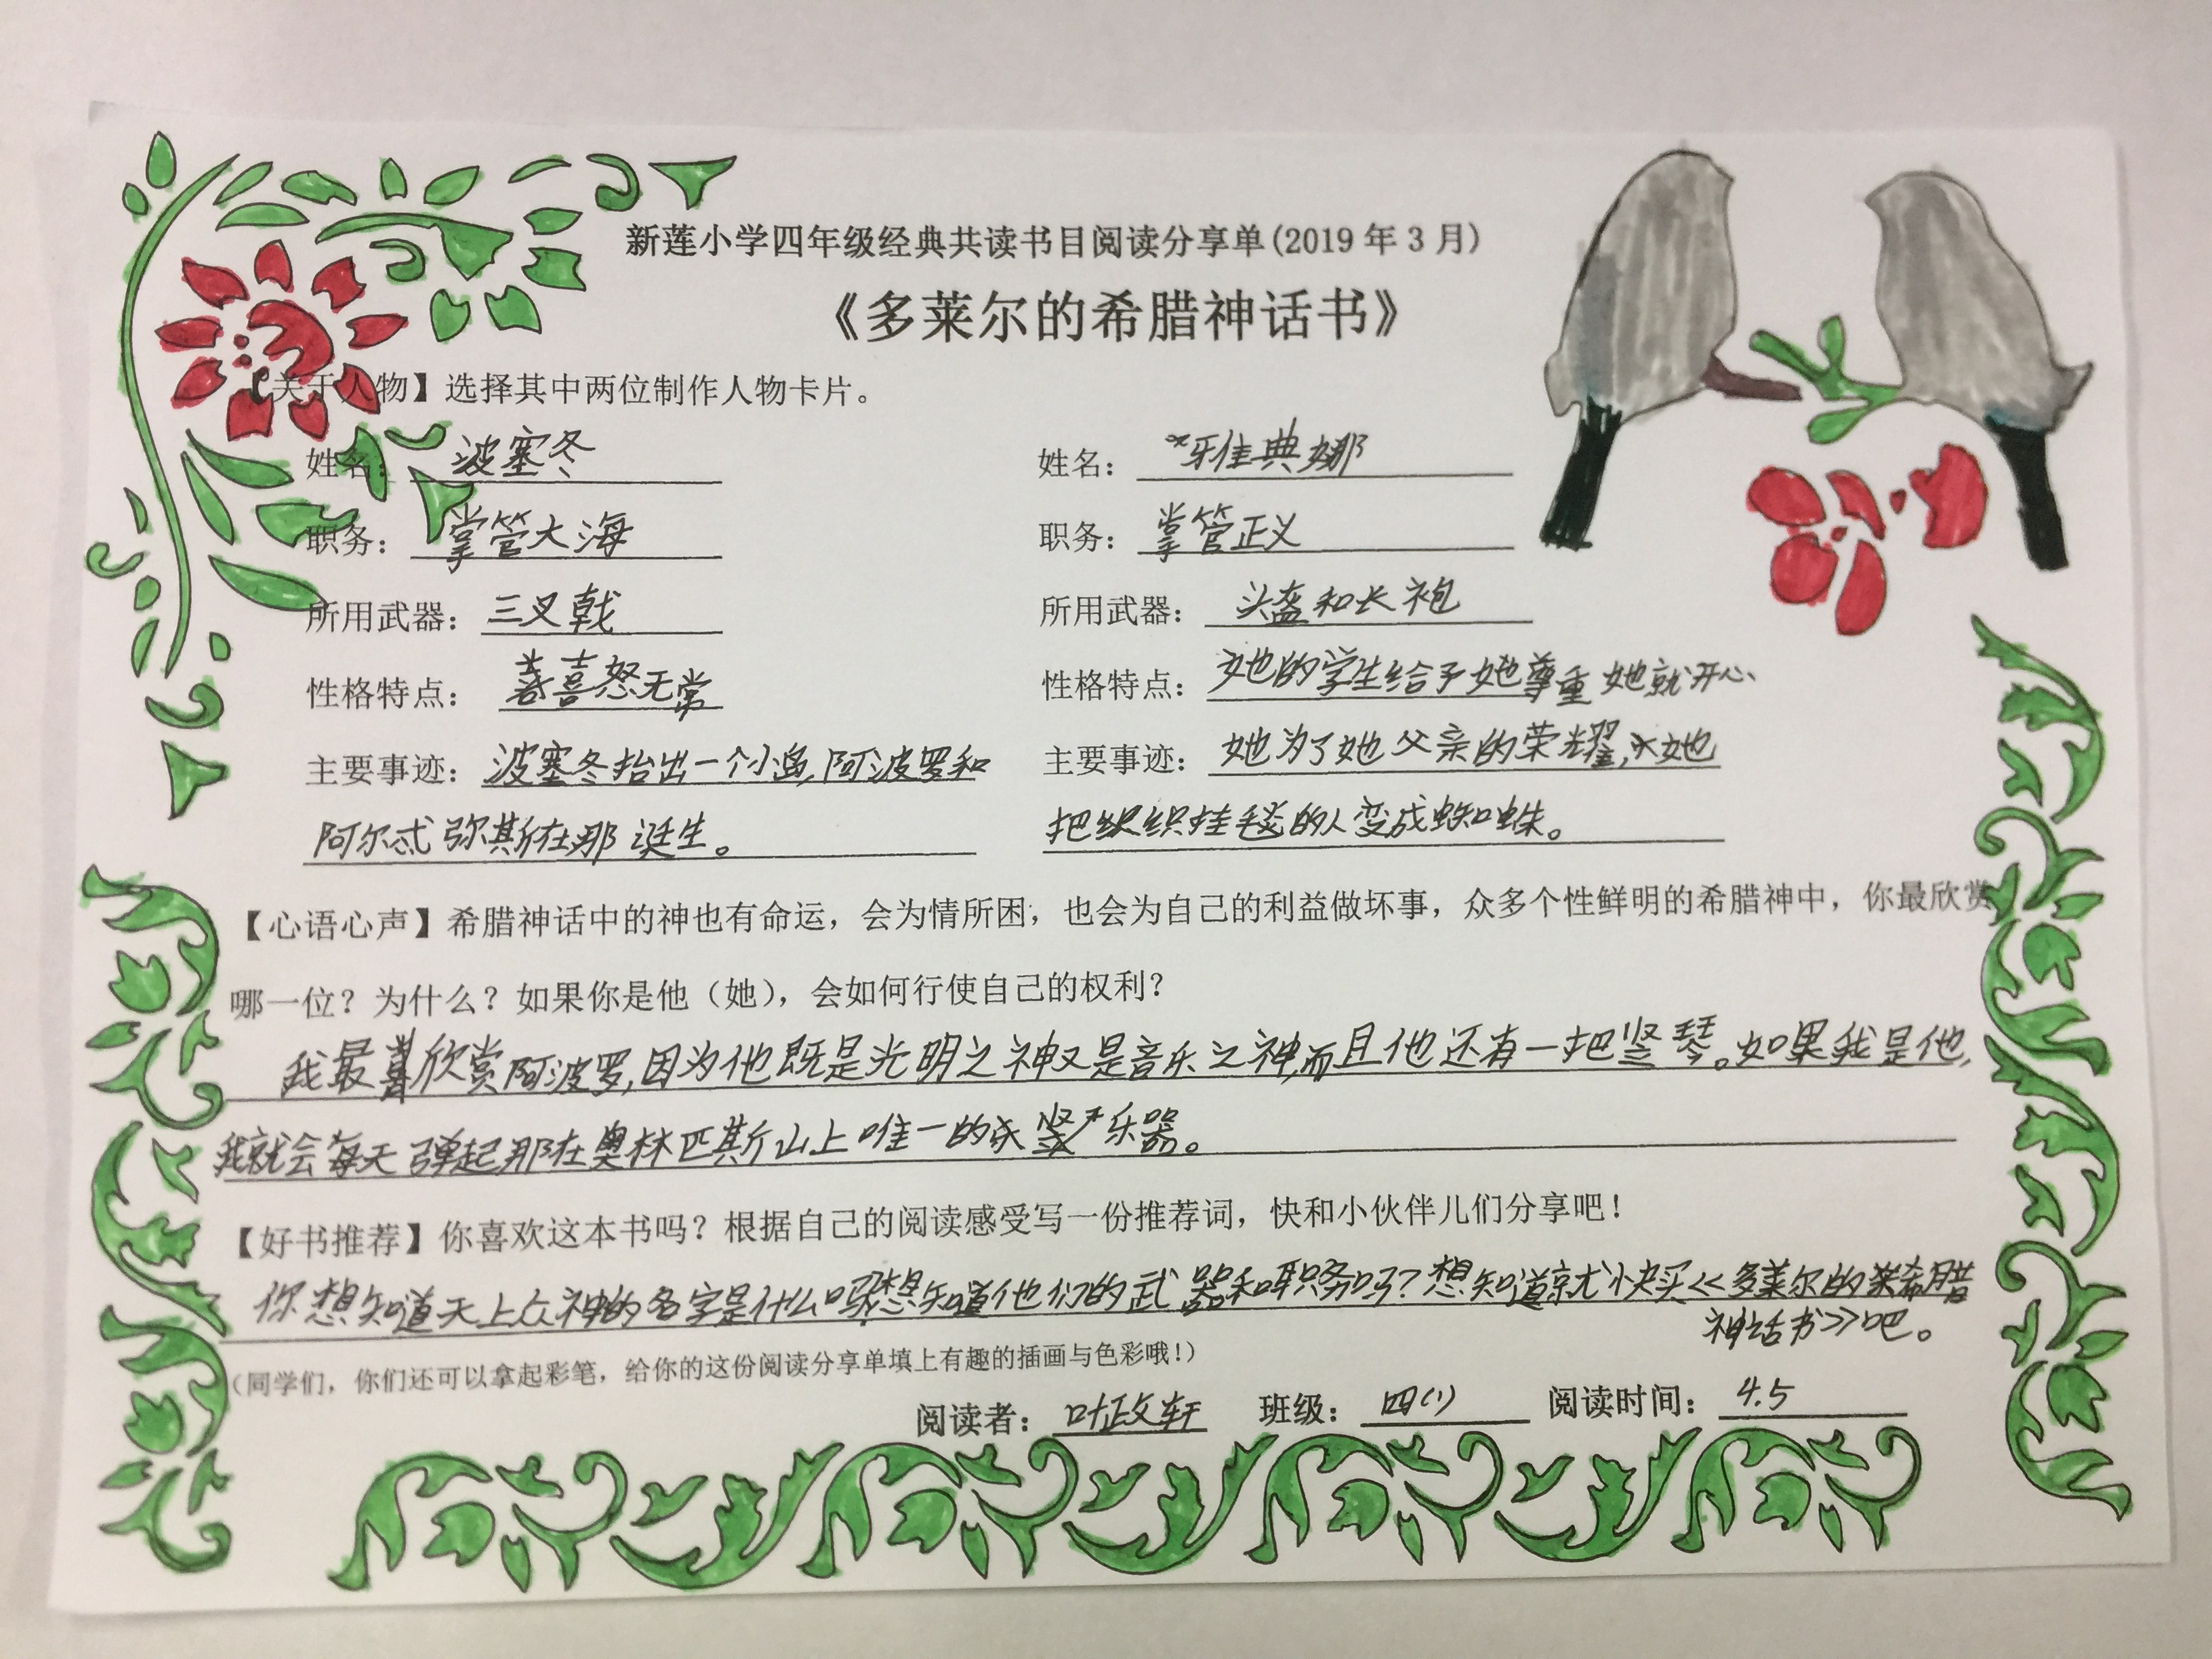 新莲小学四年级经典共读书目阅读分享单(2019年3月)
《多莱尔的希腊神话书》
【关于人物】选择其中两位制作人物卡片。
姓名： 波塞冬 姓名： 雅典娜
职务： 掌管大海 职务： 掌管正义
所用武器： 三叉戟 所用武器： 头盔和长袍
性格特点： 喜怒无常 性格特点： 她的学生给予她尊重她就开心
主要事迹： 波塞冬抬出一个小岛,阿波罗和 主要事迹： 她为了她父亲的荣耀,她
阿尔忒弥斯在那诞生。 把织挂毯的人变成蜘蛛。
【心语心声】希腊神话中的神也有命运，会为情所困，也会为自己的利益做坏事，众多个性鲜明的希腊神中，你最欣赏
哪一位？为什么？如果你是他（她），会如何行使自己的权利？
我最欣赏阿波罗,因为他既是光明之神又是音乐之神,而且他还有一把竖琴。如果我是他,
我就会每天弹起那在奥林匹斯山上唯一的乐器。
【好书推荐】你喜欢这本书吗？根据自己的阅读感受写一份推荐词，快和小伙伴儿们分享吧！
你想知道天上众神的名字是什么吗?想知道他们的武器和职务吗?想知道就快买<<多莱尔的希腊
神话书>>吧。
（同学们，你们还可以拿起彩笔，给你的这份阅读分享单填上有趣的插画与色彩哦！）
阅读者： 叶政轩 班级： 四(1) 阅读时间： 4.5